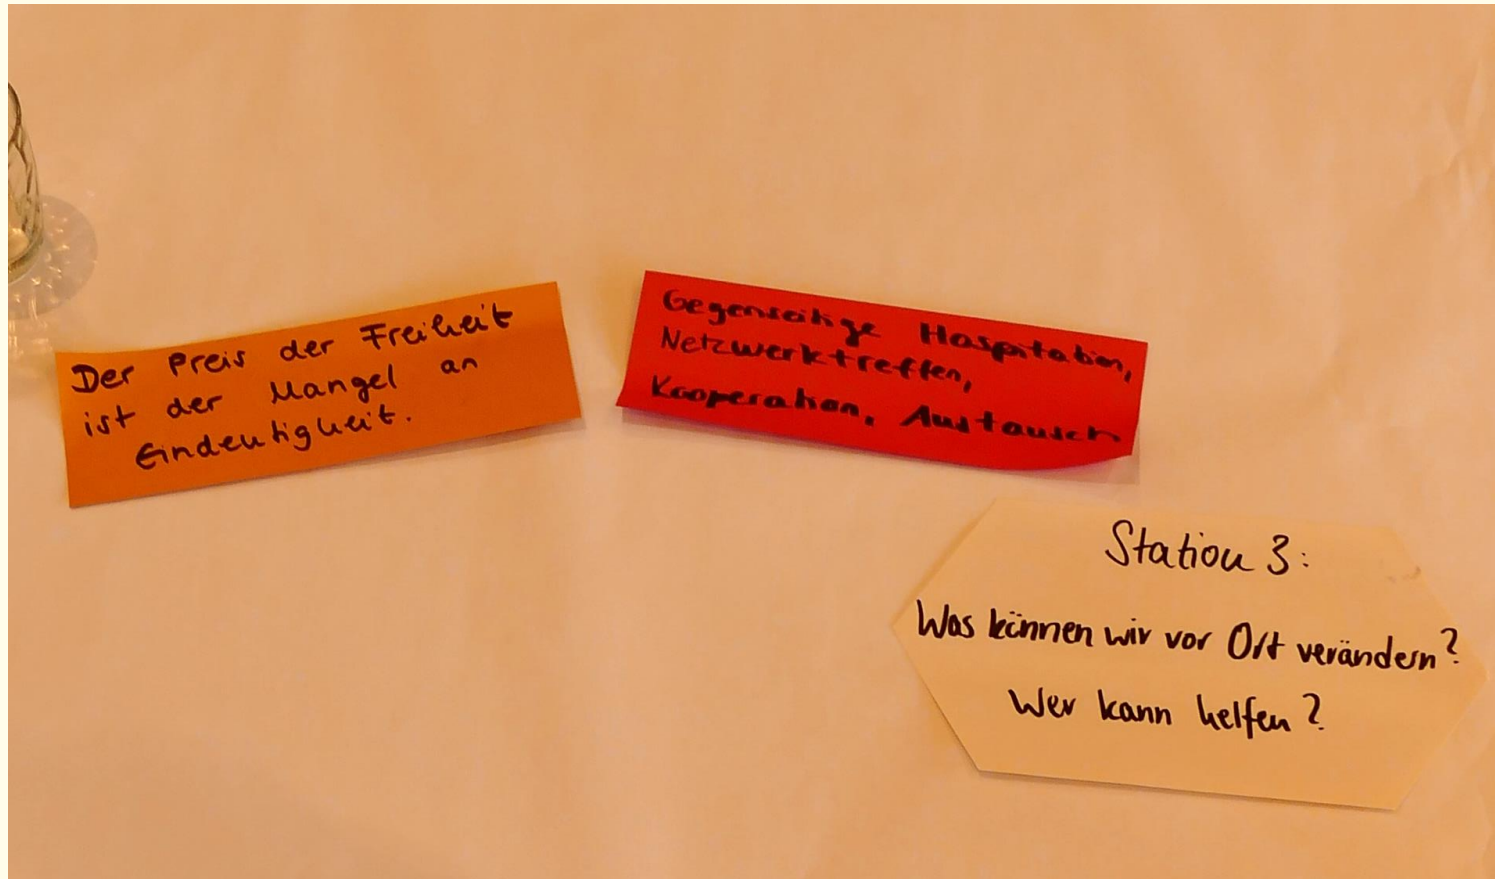 Der Preis der Freiheit
ist der Mangel an
Eindeutigkeit.
Gegenseitige Hospitation,
Netzwerktreffen,
Kooperation, Austausch
Station 3:
Was können wir vor Ort verändern?
Wer kann helfen?